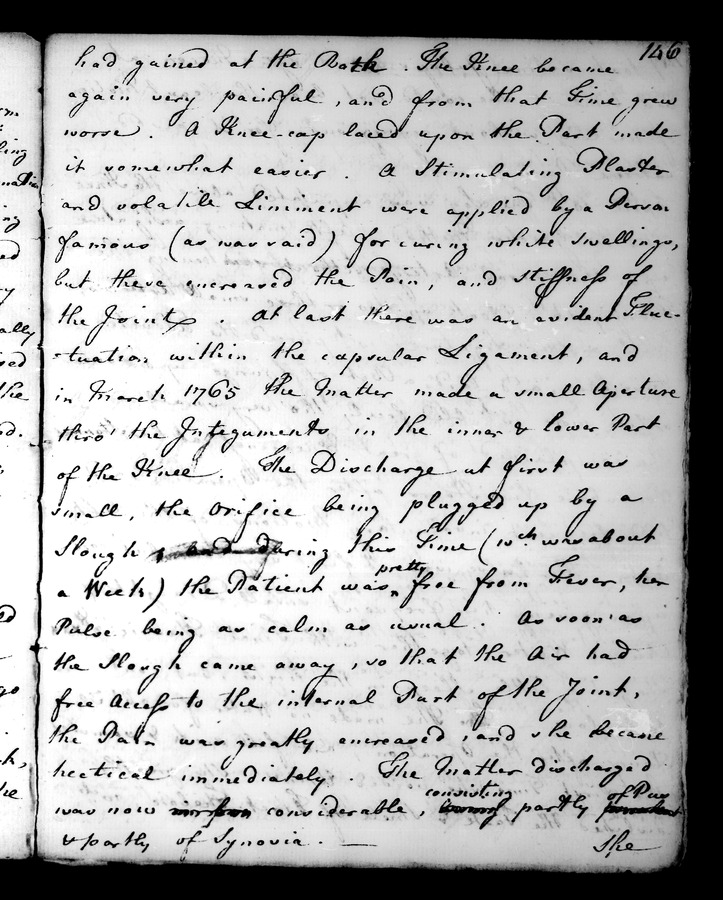 146
had gained at the Bath. The Knee became
again very painful, and from that Time grew
worse. A Knee-cap laced upon the Part made
it somewhat easier. A Stimulating Plaster
and volatile Liniment were applied by a Person
famous (as was said) for curing white Swellings,
but these encreased the Pain, and stiffness of
the Joint. At last there was an evident Fluc-
-tuation within the capsular Ligament, and
in March 1765 the Matter made a small Aperture
thro' the Integuments in the inner & lower Part
of the Knee. The Discharge at first was
small, the orifice being plugged up by a
Slough, and during this Time (wch was about
a Week) the Patient was pretty free from Fever, her
Pulse being as calm as usual. As soon as
the Slough came away, so that the Air had
free Access to the internal Part of the Joint,
the Pain was greatly encreased, and she became
hectical immediately. The Matter discharged
was now considerable, consisting partly of Pus
& partly of Synovia. —
She